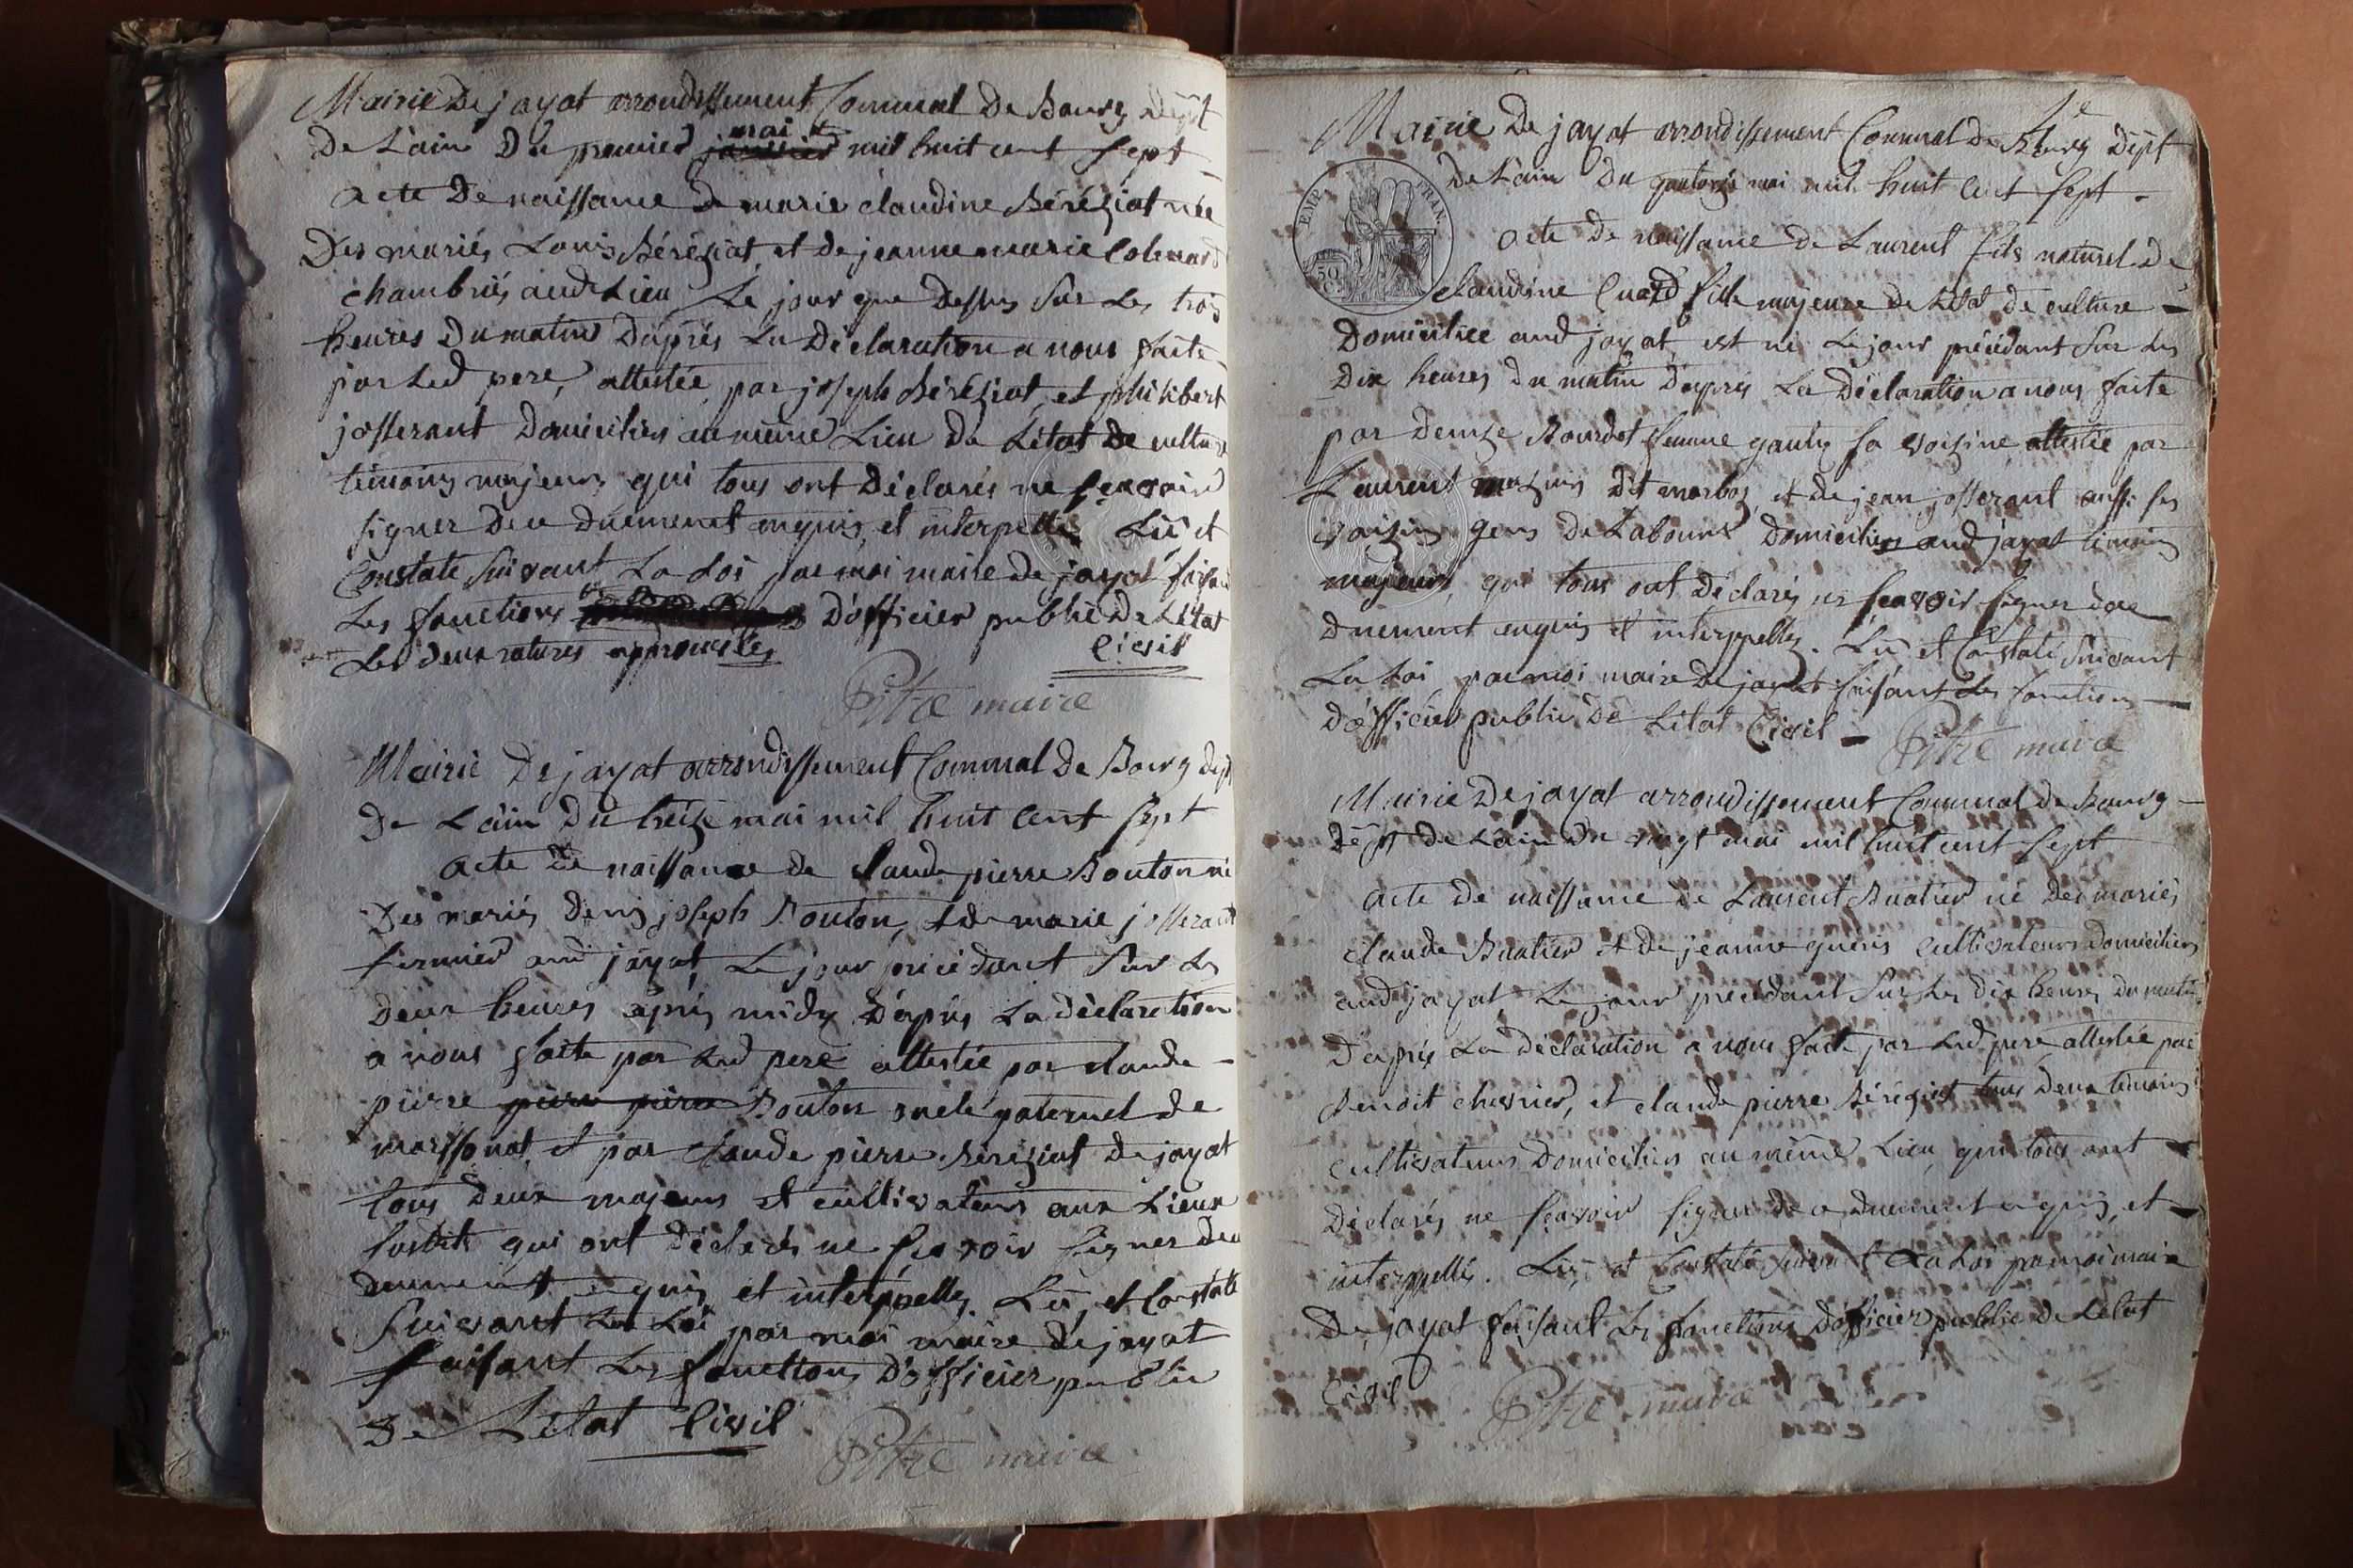 Mairie De jayat arrondissement Communal De Bourg Dept
De Lain Du premier janvier mai mil huit cent sept
acte De naissance De marie claudine Béréziat née
Des mariés Louis Béréziat, et de jeanne marie Colenard
chambriés aud Lieu Le jour que Dessus Sur Les trois
heures Du matin Daprés La Déclaration a nous faite
par Led pere, attestée par joseph Béréziat, et philibert
josserant Domiciliés au même Lieu De Létat De culture
témoins majeurs qui tous ont Déclarés ne sçavoir
signer De ce Duement enquis, et interpellés Lû et
Constaté suivant La Loi par moi maire De jayat faisant
Les fonctions D'officier public De Létat
Les deux ratures approuvées Civil
Pitre maire
Mairie De jayat arrondissement Communal De Bourg Dept
De Lain Du treize mai mil huit cent sept
acte de naissance de Claude pierre Bouton né
Des mariés Denis joseph Bouton, et de marie josserant
fermier aud jayat Le jour précédant Sur Les
Deux heures aprés midy D'aprés La Déclaration
a nous faite par Led pere attestée par claude
pierre pierre pierre Bouton oncle paternel de
marssonat, et par Claude pierre Béréziat De jayat
tous Deux majeurs et cultivateurs aux Lieux
susdits qui ont Déclarés ne sçavoir signer De ce
duement enquis et interpellés. Lû, et Constaté
Suivant La Loi par moi maire De jayat
faisant Les fonctions D'officier public
De Létat Civil
Pitre maire
Mairie De jayat arrondissement Communal De Bourg Dept
EMP. FRAN.
De Lain Du quatorze mai mil huit cent sept
acte De naissance De Laurent fils naturel De
Claudine Cuard fille majeure De Létat De culture
Domiciliée aud jayat, est né Le jour précédant Sur Les
Dix heures Du matin Daprés La Déclaration a nous faite
par Denize Bourdet femme gauly sa voizine attestée par
Laurent mazuis Dit marbos, et de jean josserant aussi ses
voizins gens De Labours Domiciliés aud jayat témoins
majeurs, qui tous ont Déclarés ne sçavoir signer De ce
Duement enquis et interppellés. Lû et Constaté Suivant
La Loi par moi maire De jayat faisant Les fonctions
D'officier public De Létat Civil
Pitre maire
Mairie De jayat arrondissement Communal De Bourg
Dept De Lain Du vingt mai mil huit cent sept
acte De naissance De Laurent Buatier né Des mariés
claude Buatier et De jeanne guéris cultivateurs Domiciliés
aud jayat Le jour précédant Sur Les Dix heures Du matin
D'aprés La Déclaration a nous faite par Led pere attestée par
Benoit chevrier, et claude pierre Béréziat tous Deux témoins
cultivateurs Domiciliés au même Lieu, qui tous ont
Déclarés ne sçavoir signer De ce Duement enquis, et
interppellés. Lû, et Constaté Suivant La Loi par moi maire
De jayat faisant Les fonctions D'officier public De Létat
Civil Pitre maire